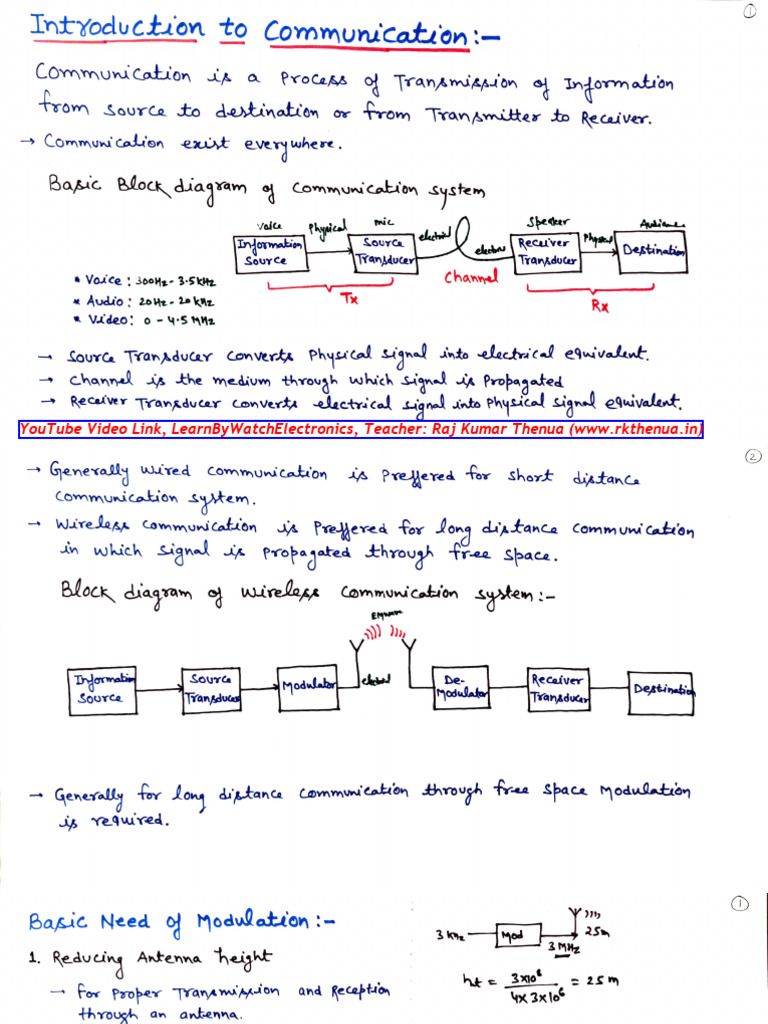 ①
Introduction to Communication:-
Communication is a Process of Transmission of Information
from source to destination or from Transmitter to Receiver.
→ Communication exist everywhere.
Basic Block diagram of communication system
Voice Physical mic electrical electrical Speaker Physical Audience
Information Source
Source Transducer
Channel
Receiver Transducer
Destination
Tx
Rx
* Voice: 300Hz - 3.5kHz
* Audio: 20Hz - 20kHz
* Video: 0 - 4.5MHz
→ Source Transducer converts Physical signal into electrical equivalent.
→ Channel is the medium through which signal is Propagated
→ Receiver Transducer converts electrical signal into Physical signal equivalent.
YouTube Video Link, LearnByWatchElectronics, Teacher: Raj Kumar Thenua (www.rkthenua.in)
②
→ Generally wired communication is preffered for short distance
communication system.
→ Wireless communication is Preffered for long distance communication
in which signal is propagated through free space.
Block diagram of wireless communication system:-
EMwave
Information Source
Source Transducer
Modulator
electrical
De-Modulator
Receiver Transducer
Destination
→ Generally for long distance communication through free space Modulation
is required.
①
Basic Need of Modulation:-
1. Reducing Antenna height
→ for Proper Transmission and Reception
through an antenna.
3 kHz Mod 3 MHz 25m
ht = 3x10⁸ / 4x3x10⁶ = 25m